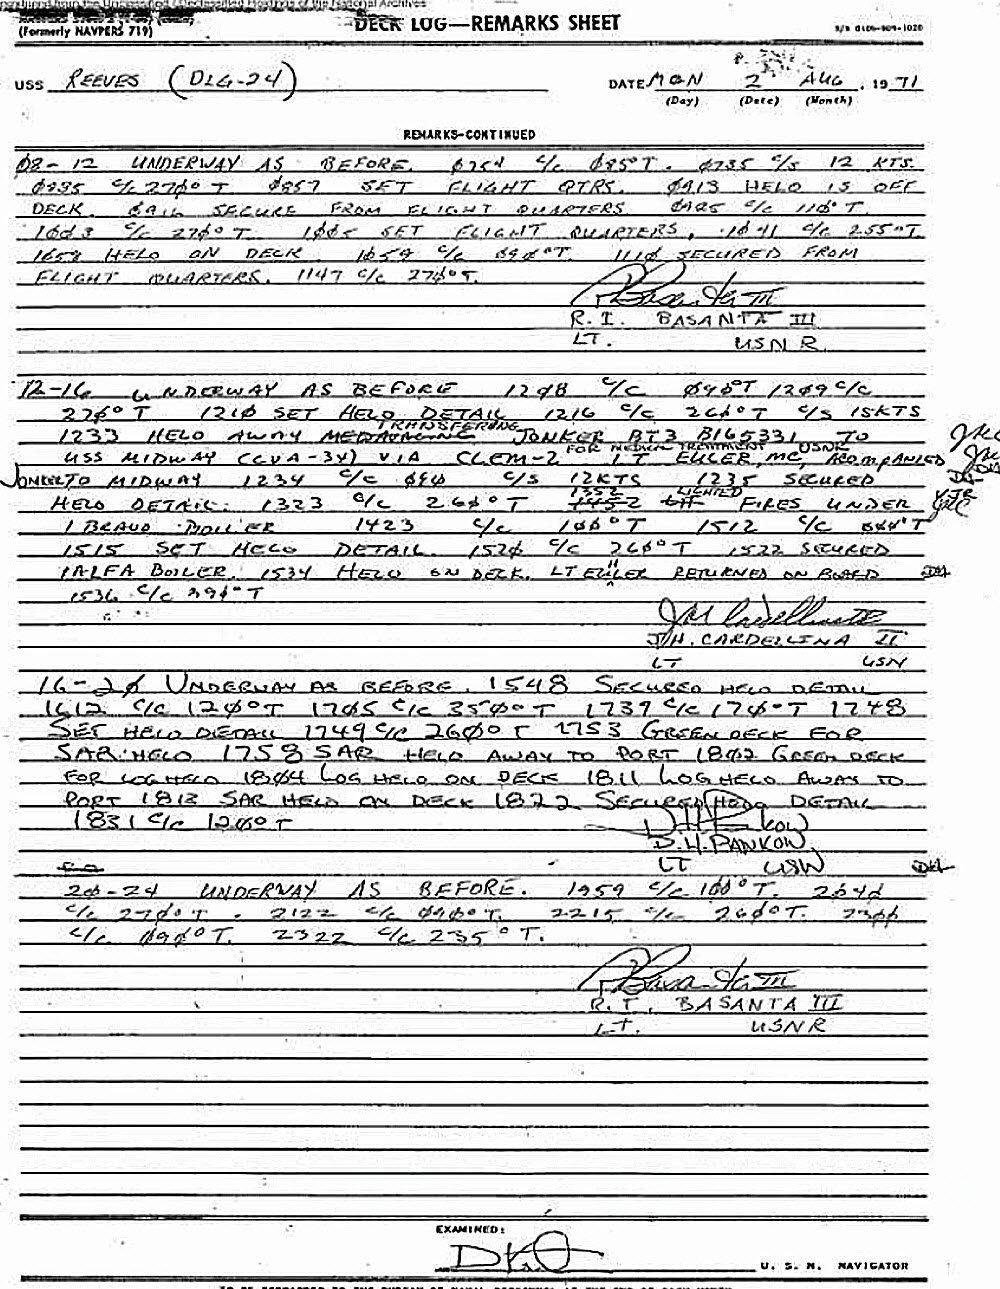 (Formerly NAVPERS 719)
DECK LOG—REMARKS SHEET
USS REEVES (DLG-24) DATE MON 2 AUG, 1971
(Day) (Date) (Month)
REMARKS-CONTINUED
08-12 UNDERWAY AS BEFORE. 0754 C/C 085°T. 0735 C/S 12 KTS.
0835 C/C 270°T 0857 SET FLIGHT QTRS. 0913 HELO IS OFF
DECK. SECURE FROM FLIGHT QUARTERS C/C 110°T.
1003 C/C 270°T. 1005 SET FLIGHT QUARTERS, 1041 C/C 255°T
1058 HELO ON DECK 1059 C/C 090°T. 1110 SECURED FROM
FLIGHT QUARTERS. 1147 C/C 270°T.
R. I. BASANTA III
LT. USNR
12-16 UNDERWAY AS BEFORE 1208 C/C 090°T 1209 C/C
270°T 1210 SET HELO DETAIL 1216 C/C 260°T C/S 15KTS
TRANSFERING
1233 HELO AWAY JONKER BT3 B165331 TO
FOR MEDICAL TREATMENT USNR
USS MIDWAY (CVA-34) VIA CLEM-2 LT EULER, MC, ACOMPANIED
JONKER TO MIDWAY 1234 C/C 090 C/S 12KTS 1235 SECURED
1352 LIGHTED
HELO DETAIL. 1323 C/C 260°T 1452 FIRES UNDER
1 BRAVO BOILER 1423 C/C 100°T 1512 C/C T
1515 SET HELO DETAIL. 1520 C/C 260°T 1522 SECURED
1ALFA BOILER. 1534 HELO ON DECK. LT EULER RETURNED ON BOARD
1536 C/C 090°T
J.H. CARDELLINA II
LT USN
16-20 UNDERWAY AS BEFORE. 1548 SECURED HELO DETAIL
1612 C/C 120°T 1705 C/C 350°T 1739 C/C 170°T 1748
SET HELO DETAIL 1749 C/C 260°T 1753 GREEN DECK FOR
SAR HELO 1758 SAR HELO AWAY TO PORT 1802 GREEN DECK
FOR LOG HELO 1804 LOG HELO ON DECK 1811 LOG HELO AWAY TO
PORT 1813 SAR HELO ON DECK 1822 SECURED HELO DETAIL
1831 C/C 120°T
D.H. PANKOW
LT USN
20-24 UNDERWAY AS BEFORE. 1959 C/C 100°T. 2040
C/C 270°T. 2122 C/C 090°T. 2215 C/C 260°T. 2300
C/C 090°T. 2322 C/C 235°T.
R. I. BASANTA III
LT. USNR
EXAMINED:
U. S. N. NAVIGATOR